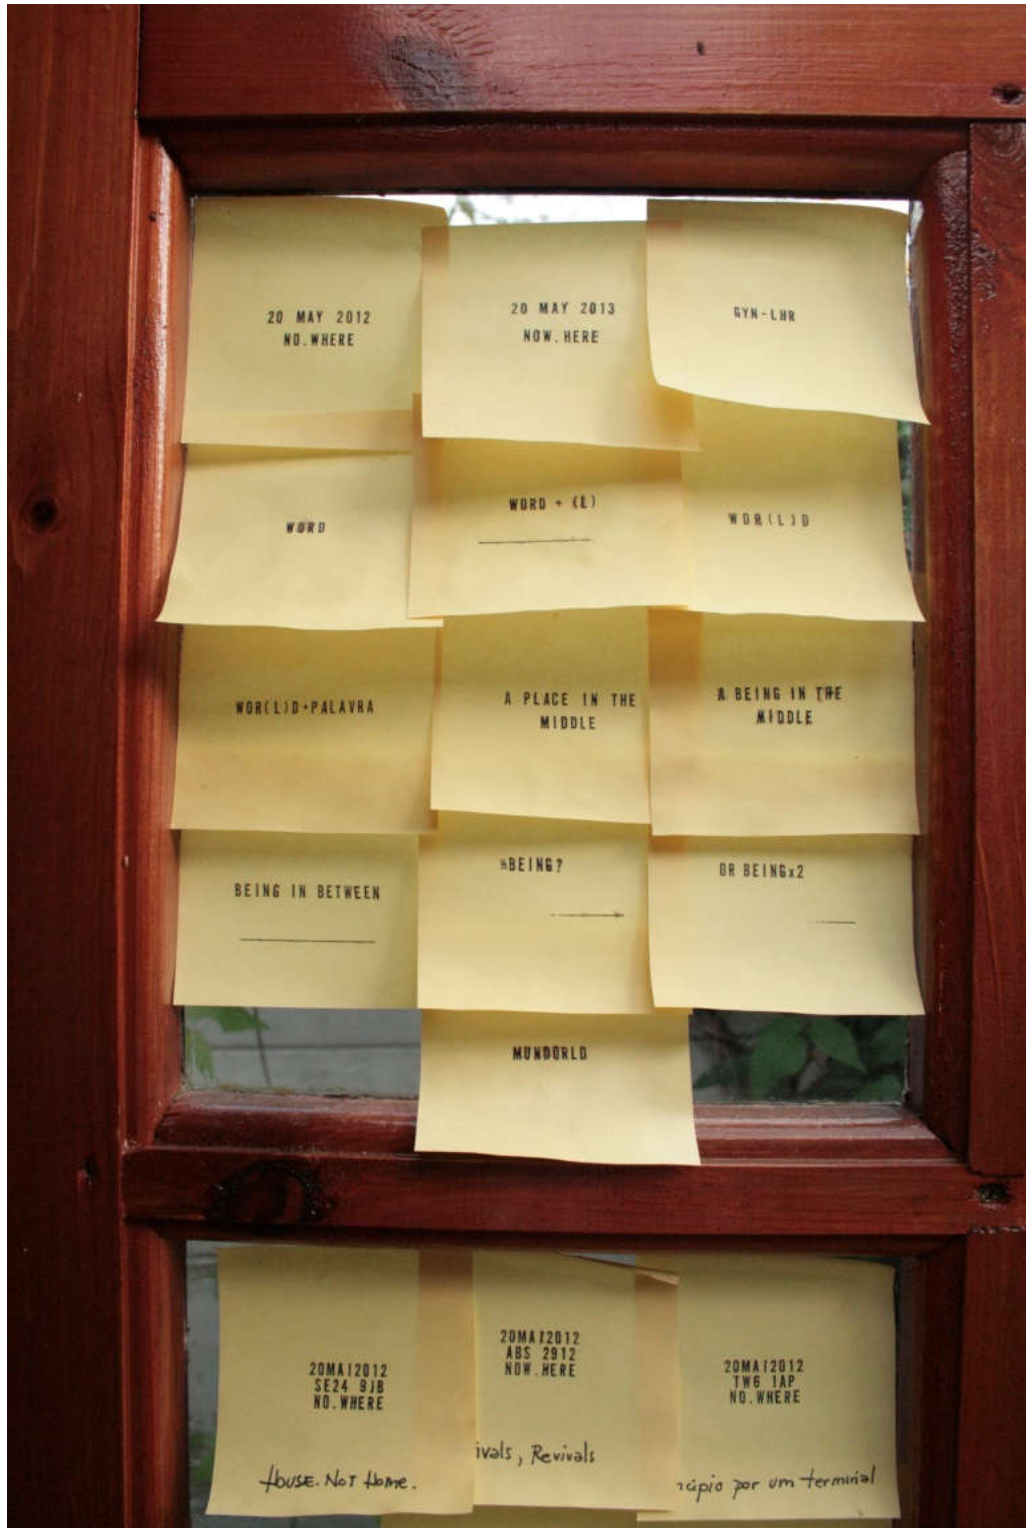 20 MAY 2012
NO.WHERE
20 MAY 2013
NOW.HERE
GYN-LHR
WORD
WORD + (L)
WOR(L)D
WOR(L)D+PALAVRA
A PLACE IN THE
MIDDLE
A BEING IN THE
MIDDLE
BEING IN BETWEEN
½BEING?
OR BEINGx2
MUNDORLD
20MAI2012
SE24 9JB
NO.WHERE
HOUSE. NOT HOME.
20MAI2012
ABS 2912
NOW.HERE
ivals, Revivals
20MAI2012
TW6 1AP
NO.WHERE
ncípio por um terminal